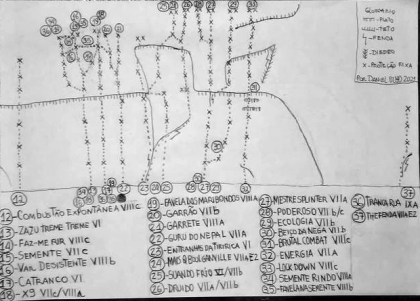 GLOSSÁRIO
TETO
TETO
FENDA
DIEDRO
x - PROTEÇÃO FIXA
12 - COMBUSTÃO EXPONTÂNEA VIIIC
13 - ZAZU TREME TREME VI
14 - FAZ-ME RIR VIIIC
15 - SEMENTE VIIC
16 - VAN DESISTENTE VIIIB
17 - CATRANCO VI
18 - X9 VIIC/VIIIA
19 - FAVELA DOS MARIBONDOS VIIIA
20 - GARRÃO VIIB
21 - GARRETE VIIIA
22 - GURU DO NEPAL VIIA
23 - ENTRANHAS DA TIRIRICA VI
24 - MAISQBOULGANVILLE VIIIA E2
25 - SUANDO FRIO VI/VIIB
26 - DRUIDO VIIA/VIIB
27 - MESTRE SPLINTER VIIA
28 - PODEROSO VIIB/C
29 - ECOLOGIA VIIB
30 - BECO DA NEGA VIIB
31 - BRUTAL COMBAT VIIIC
32 - ENERGIA VIIA
33 - LOCK DOWN VIIIC
34 - SEMENTE RINDO VIIIA
35 - FAVELA NA SEMENTE VIIIB
36 - TRANCA RUA IXA
37 - THE FENDA VIIA E2
12
22
23
24
25
26
27
29
30
31
32
37